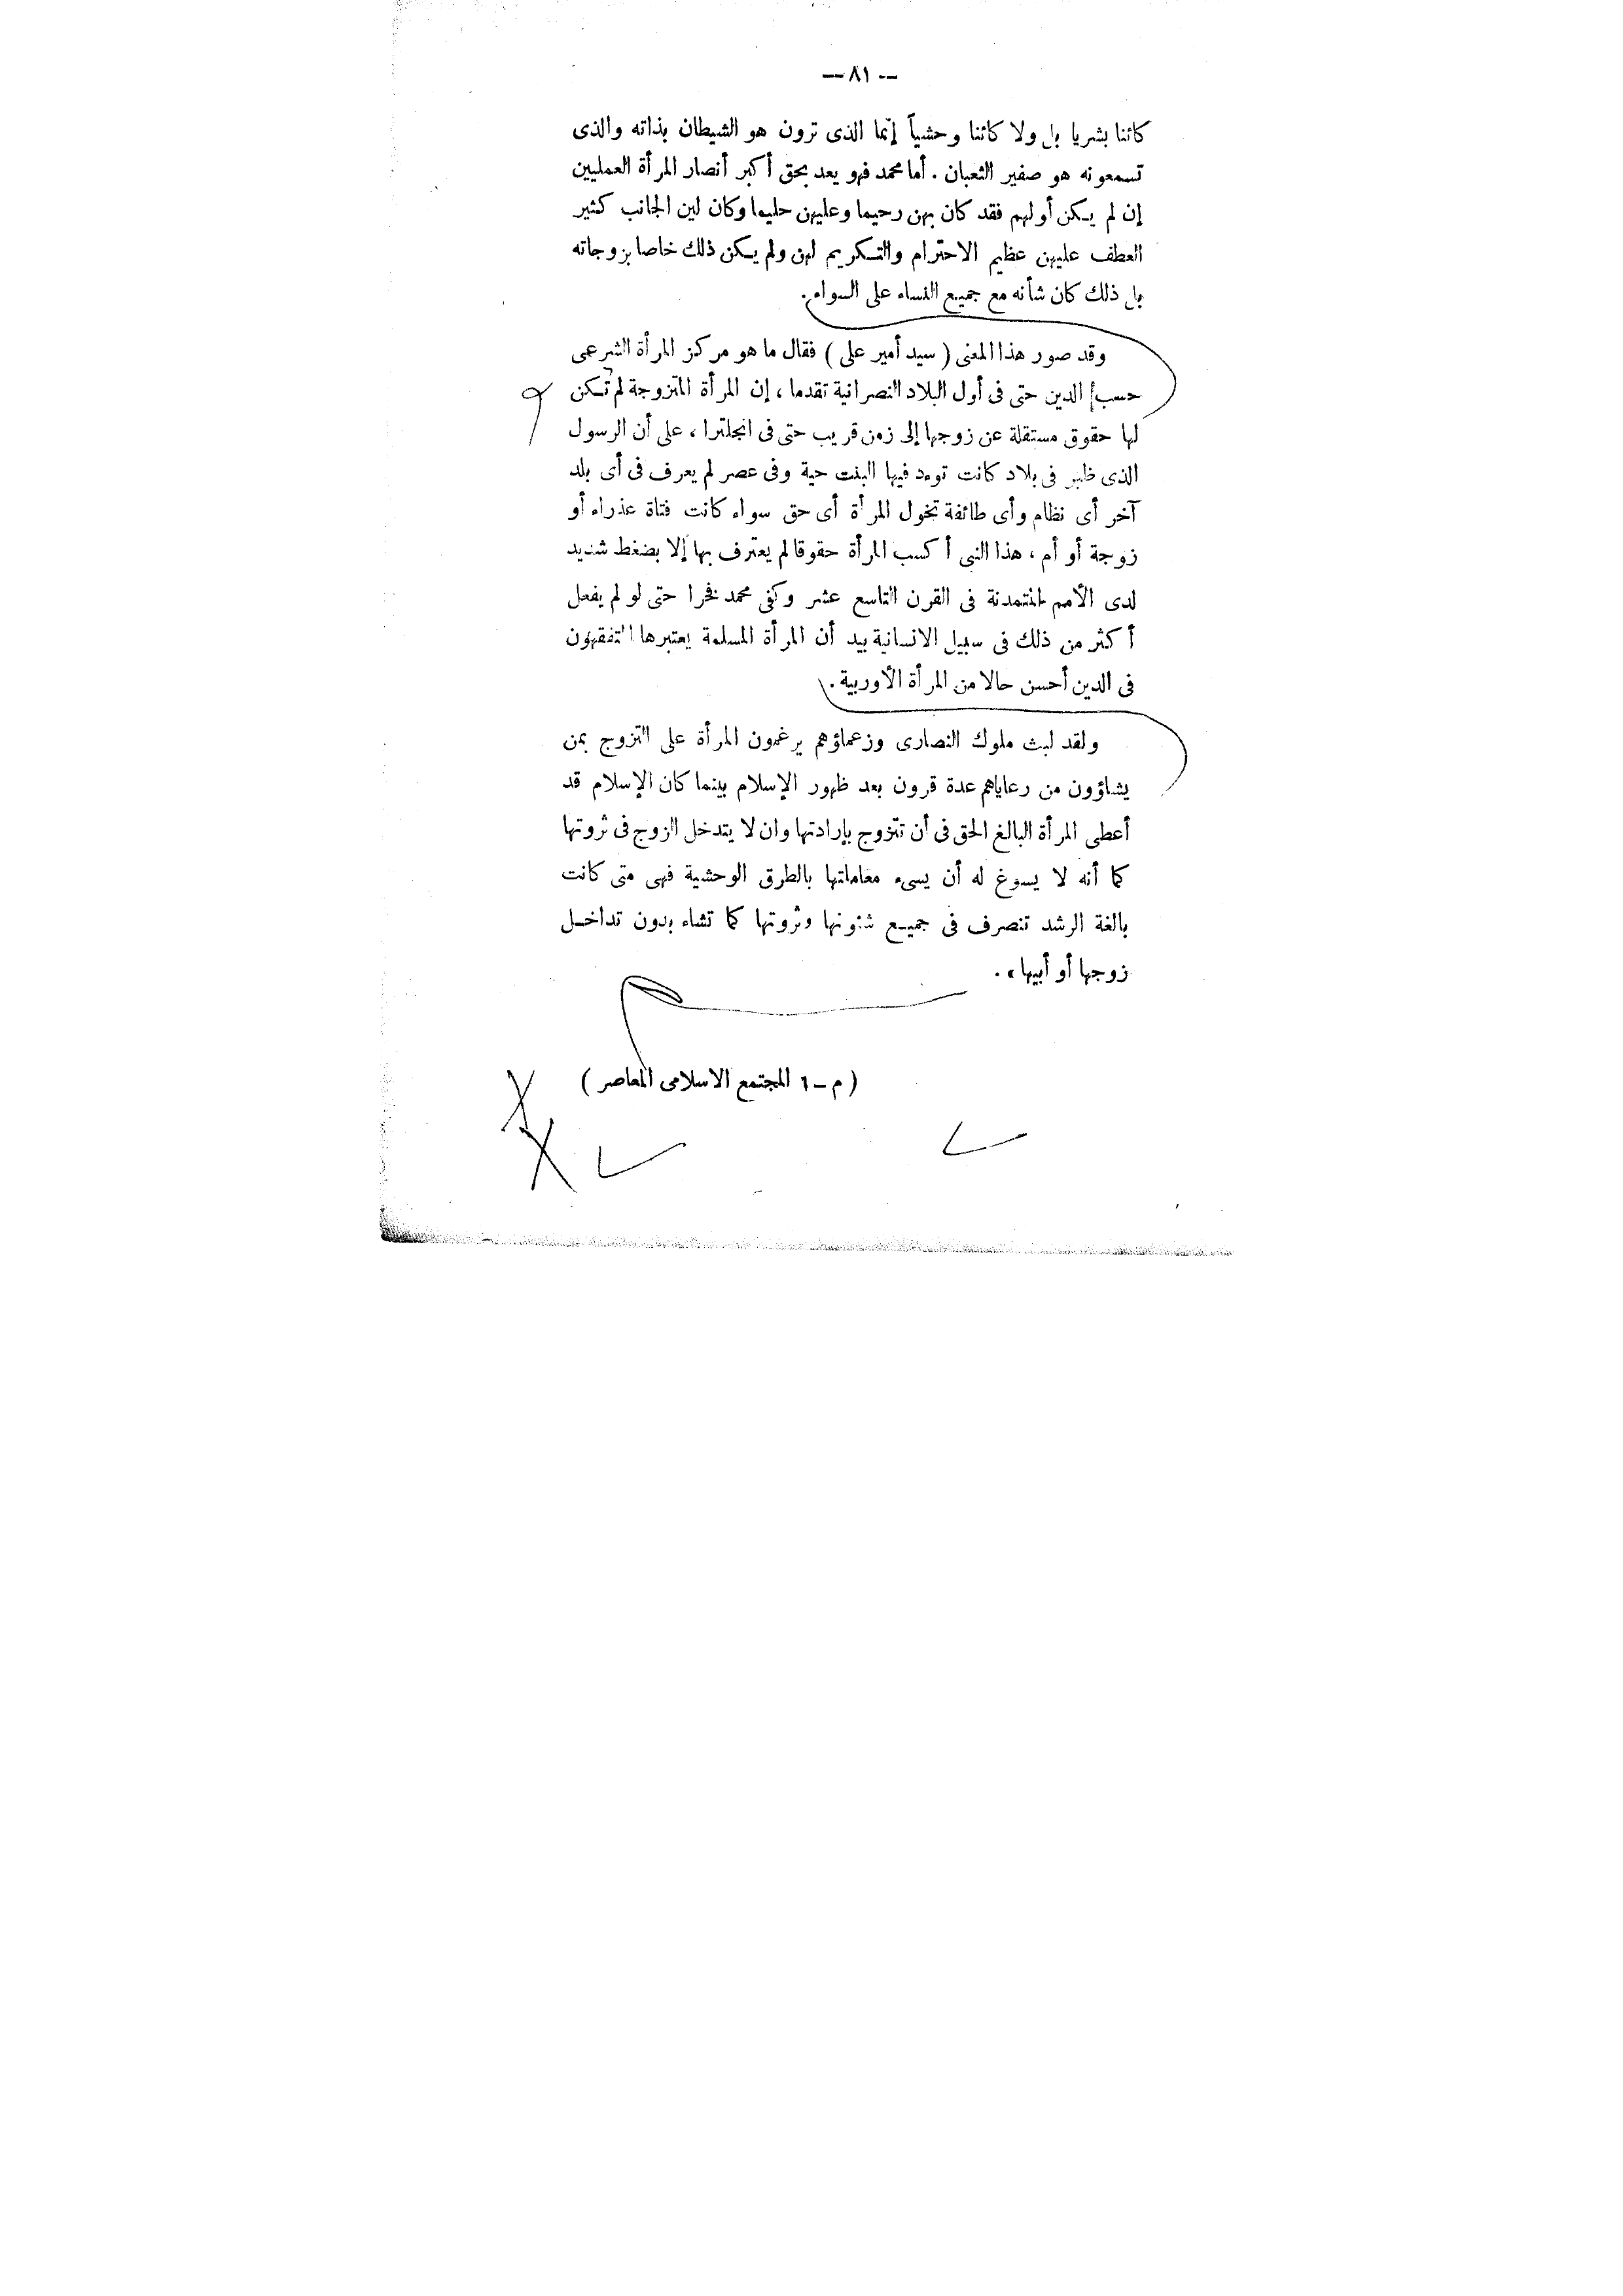 — ٨١ —
كائنا بشريا بل ولا كائنا وحشياً إنما الذى ترون هو الشيطان بذاته والذى
تسمعونه هو صفير الثعبان . أما محمد فهو يعد بحق أكبر أنصار المرأة العمليين
إن لم يكن أولهم فقد كان بهن رحيما وعليهن حليما وكان لين الجانب كثير
العطف عليهن عظيم الاحترام والتكريم لهن ولم يكن ذلك خاصا بزوجاته
بل ذلك كان شأنه مع جميع النساء على السواء .
وقد صور هذا المعنى ( سيد أمير على ) فقال ما هو مركز المرأة الشرعى
حسب الدين حتى فى أول البلاد النصرانية تقدما ، إن المرأة المتزوجة لم تكن
لها حقوق مستقلة عن زوجها إلى زمن قريب حتى فى انجلترا ، على أن الرسول
الذى ظهر فى بلاد كانت توءد فيها البنت حية وفى عصر لم يعرف فى أى بلد
آخر أى نظام وأى طائفة تخول المرأة أى حق سواء كانت فتاة عذراء أو
زوجة أو أم ، هذا النبى أكسب المرأة حقوقا لم يعترف بها إلا بضغط شديد
لدى الأمم المتمدنة فى القرن التاسع عشر وكفى محمد فخرا حتى لو لم يفعل
أكثر من ذلك فى سبيل الانسانية بيد أن المرأة المسلمة يعتبرها المتفقهون
فى الدين أحسن حالا من المرأة الأوربية .
ولقد لبث ملوك النصارى وزعماؤهم يرغمون المرأة على التزوج بمن
يشاؤون من رعاياهم عدة قرون بعد ظهور الإسلام بينما كان الإسلام قد
أعطى المرأة البالغ الحق فى أن تتزوج بإرادتها وان لا يتدخل الزوج فى ثروتها
كما أنه لا يسوغ له أن يسىء معاملتها بالطرق الوحشية فهى متى كانت
بالغة الرشد تتصرف فى جميع شئونها وثروتها كما تشاء بدون تداخل
زوجها أو أبيها » .
( م – ٦ المجتمع الاسلامى المعاصر )